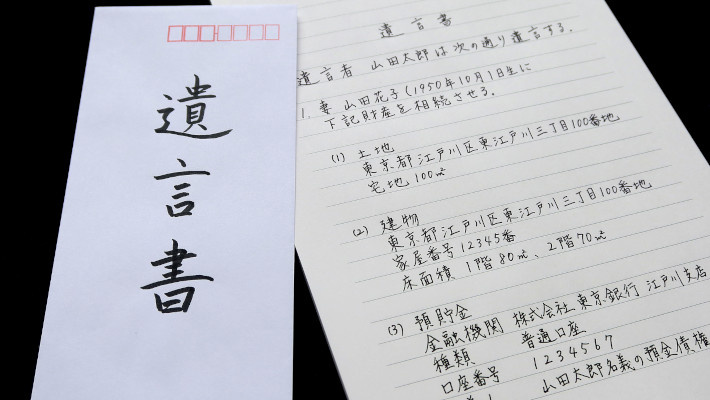 遺言書
遺言書
遺言者 山田太郎は次の通り遺言する。
1. 妻 山田花子(1950年10月1日生に
下記財産を相続させる。
(1) 土地
東京都江戸川区東江戸川三丁目100番地
宅地 100㎡
(2) 建物
東京都江戸川区東江戸川三丁目100番地
家屋番号 12345番
床面積 1階 80㎡、2階 70㎡
(3) 預貯金
金融機関 株式会社 東京銀行 江戸川支店
種類 普通口座
口座番号 1234567
山田太郎名義の預金債権